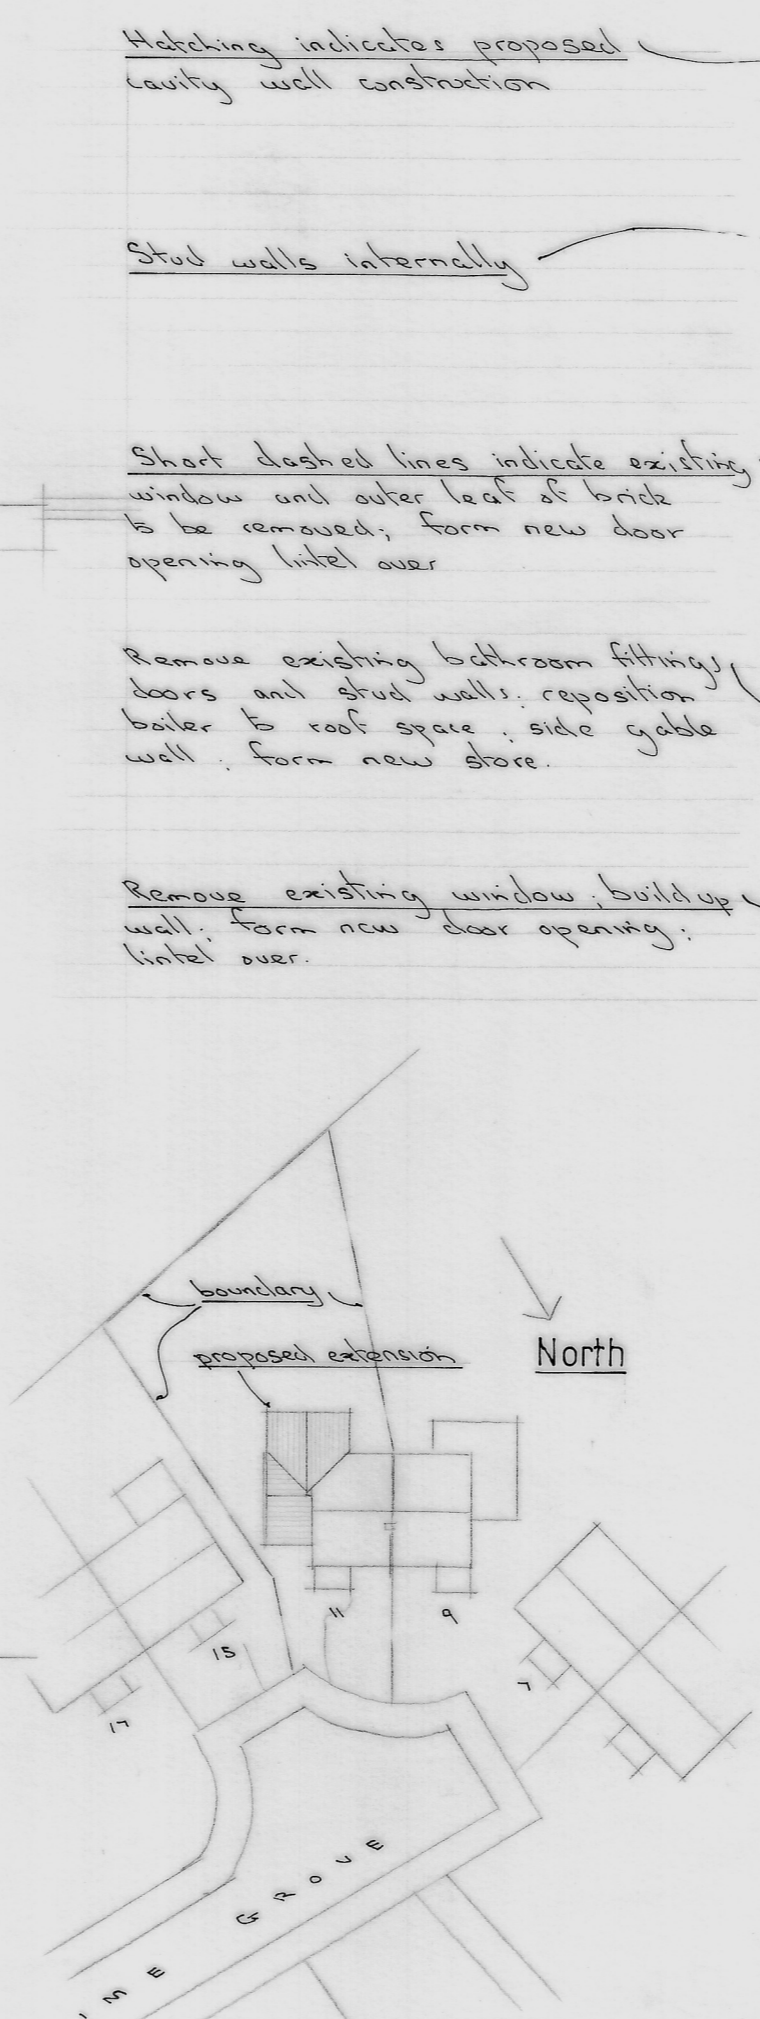 Hatching indicates proposed
cavity wall construction
Stud walls internally
Short dashed lines indicate existing
window and outer leaf of brick
to be removed; form new door
opening lintel over
Remove existing bathroom fittings,
doors and stud walls; reposition
boiler to roof space ; side gable
wall ; form new store.
Remove existing window ; build up
wall; form new door opening;
lintel over.
boundary
proposed extension
North
11
9
15
7
17
GROVE
ME